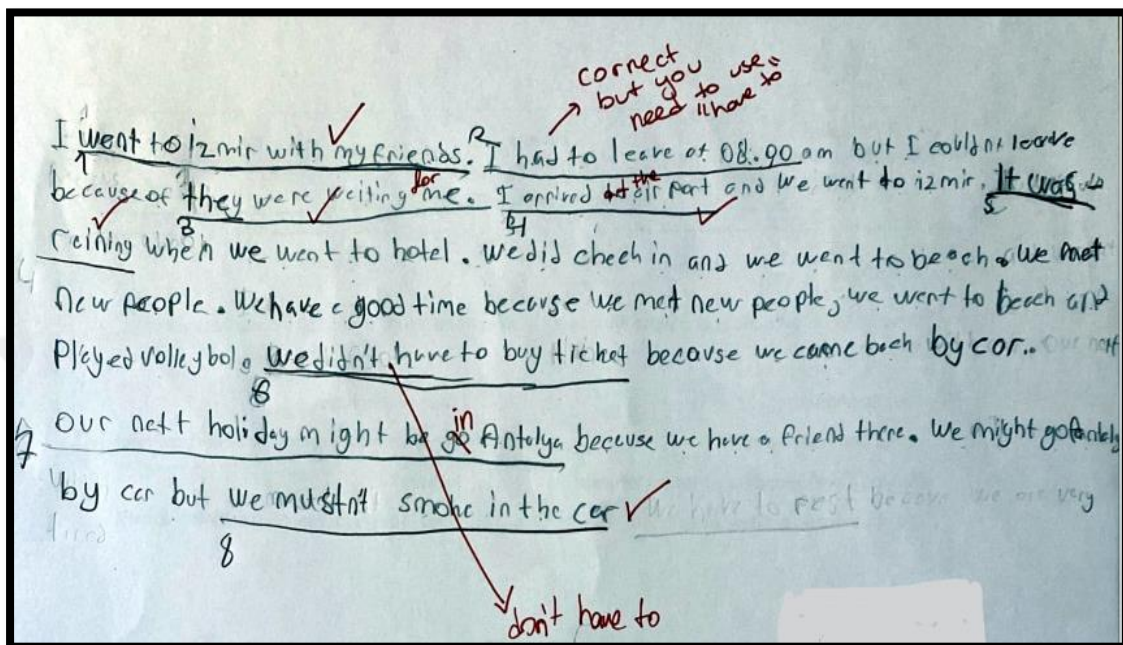 correct
but you
need to use
"have to
I went to izmir with my friends. 2 I had to leave at 08.90 am but I couldnt leave
1
because of they were weiting for me. I arrived the air port and we went to izmir. It was
3 4 5
reining when we went to hotel. we did chech in and we went to beach. we met
new people. We have a good time because we met new people, we went to beach and
played volleybol. we didn't have to buy ticket because we came bach by car..
6
7 our nett holiday might be in Antalya because we have a friend there. We might go
by car but we mustn't smoke in the car we have to rest because we are very
tired
8
don't have to